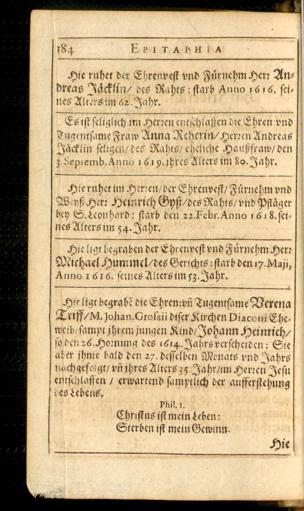 184 EPITAPHIA
Hie ruhet der Ehrenvest vnd Fürnehm Herr An-
dreas Jäcklin/ des Rahts: starb Anno 1616. sei-
nes Alters im 62. Jahr.
Es ist seliglich im Herren entschlaffen die Ehren vnd
Tugentsame Fraw Anna Reherin/ Herren Andreas
Jäcklin seligen/ des Rahts/ eheliche Haußfraw/ den
3. Septemb. Anno 1619. ihres Alters im 80. Jahr.
Hie ruhet im Herren/ der Ehrenvest/ Fürnehm vnd
Weyß Herr Heinrich Gyß/ des Rahts/ vnd Pfläger
bey S. Leonhard: starb den 22. Febr. Anno 1618. sei-
nes Alters im 54. Jahr.
Hie ligt begraben der Ehrenvest vnd Fürnehm Herr
Michael Hummel/ des Gerichts: starb den 17. Maij,
Anno 1616. seines Alters im 53. Jahr.
Hie ligt begrabē die Ehren: vñ Tugentsame Verena
Triff/ M. Johan. Grossii diser Kirchen Diaconi Ehe-
weib/ sampt ihrem jungen Kind/ Johann Heinrich/
so den 26. Hornung des 1614. Jahrs verscheiden: Sie
aber ihme bald den 27. desselben Monats vnd Jahrs
nachgefolgt/ vñ ihres Alters 35. Jahr/ im Herren Jesu
entschlaffen / erwartend samptlich der aufferstehung
des Lebens.
Phil. 1.
Christus ist mein Leben:
Sterben ist mein Gewinn.
Hie